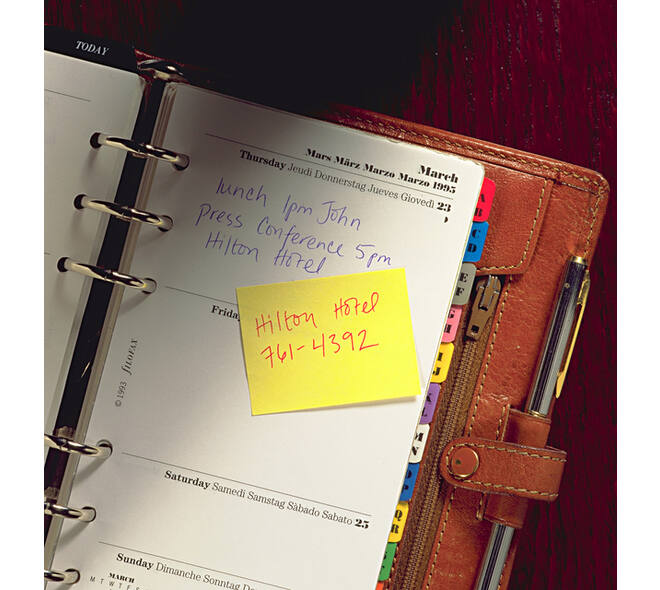 TODAY
March
Mars März Marzo Marzo 1995
Thursday Jeudi Donnerstag Jueves Giovedì 23
lunch 1pm John
Press Conference 5pm
Hilton Hotel
Friday
Hilton Hotel
761-4392
© 1993 filofax
Saturday Samedi Samstag Sàbado Sabato 25
Sunday Dimanche Sonntag Do
MARCH
M T W T F S
A
B
C
D
E
F
G
H
I
J
K
L
M
N
O
P
Q
R